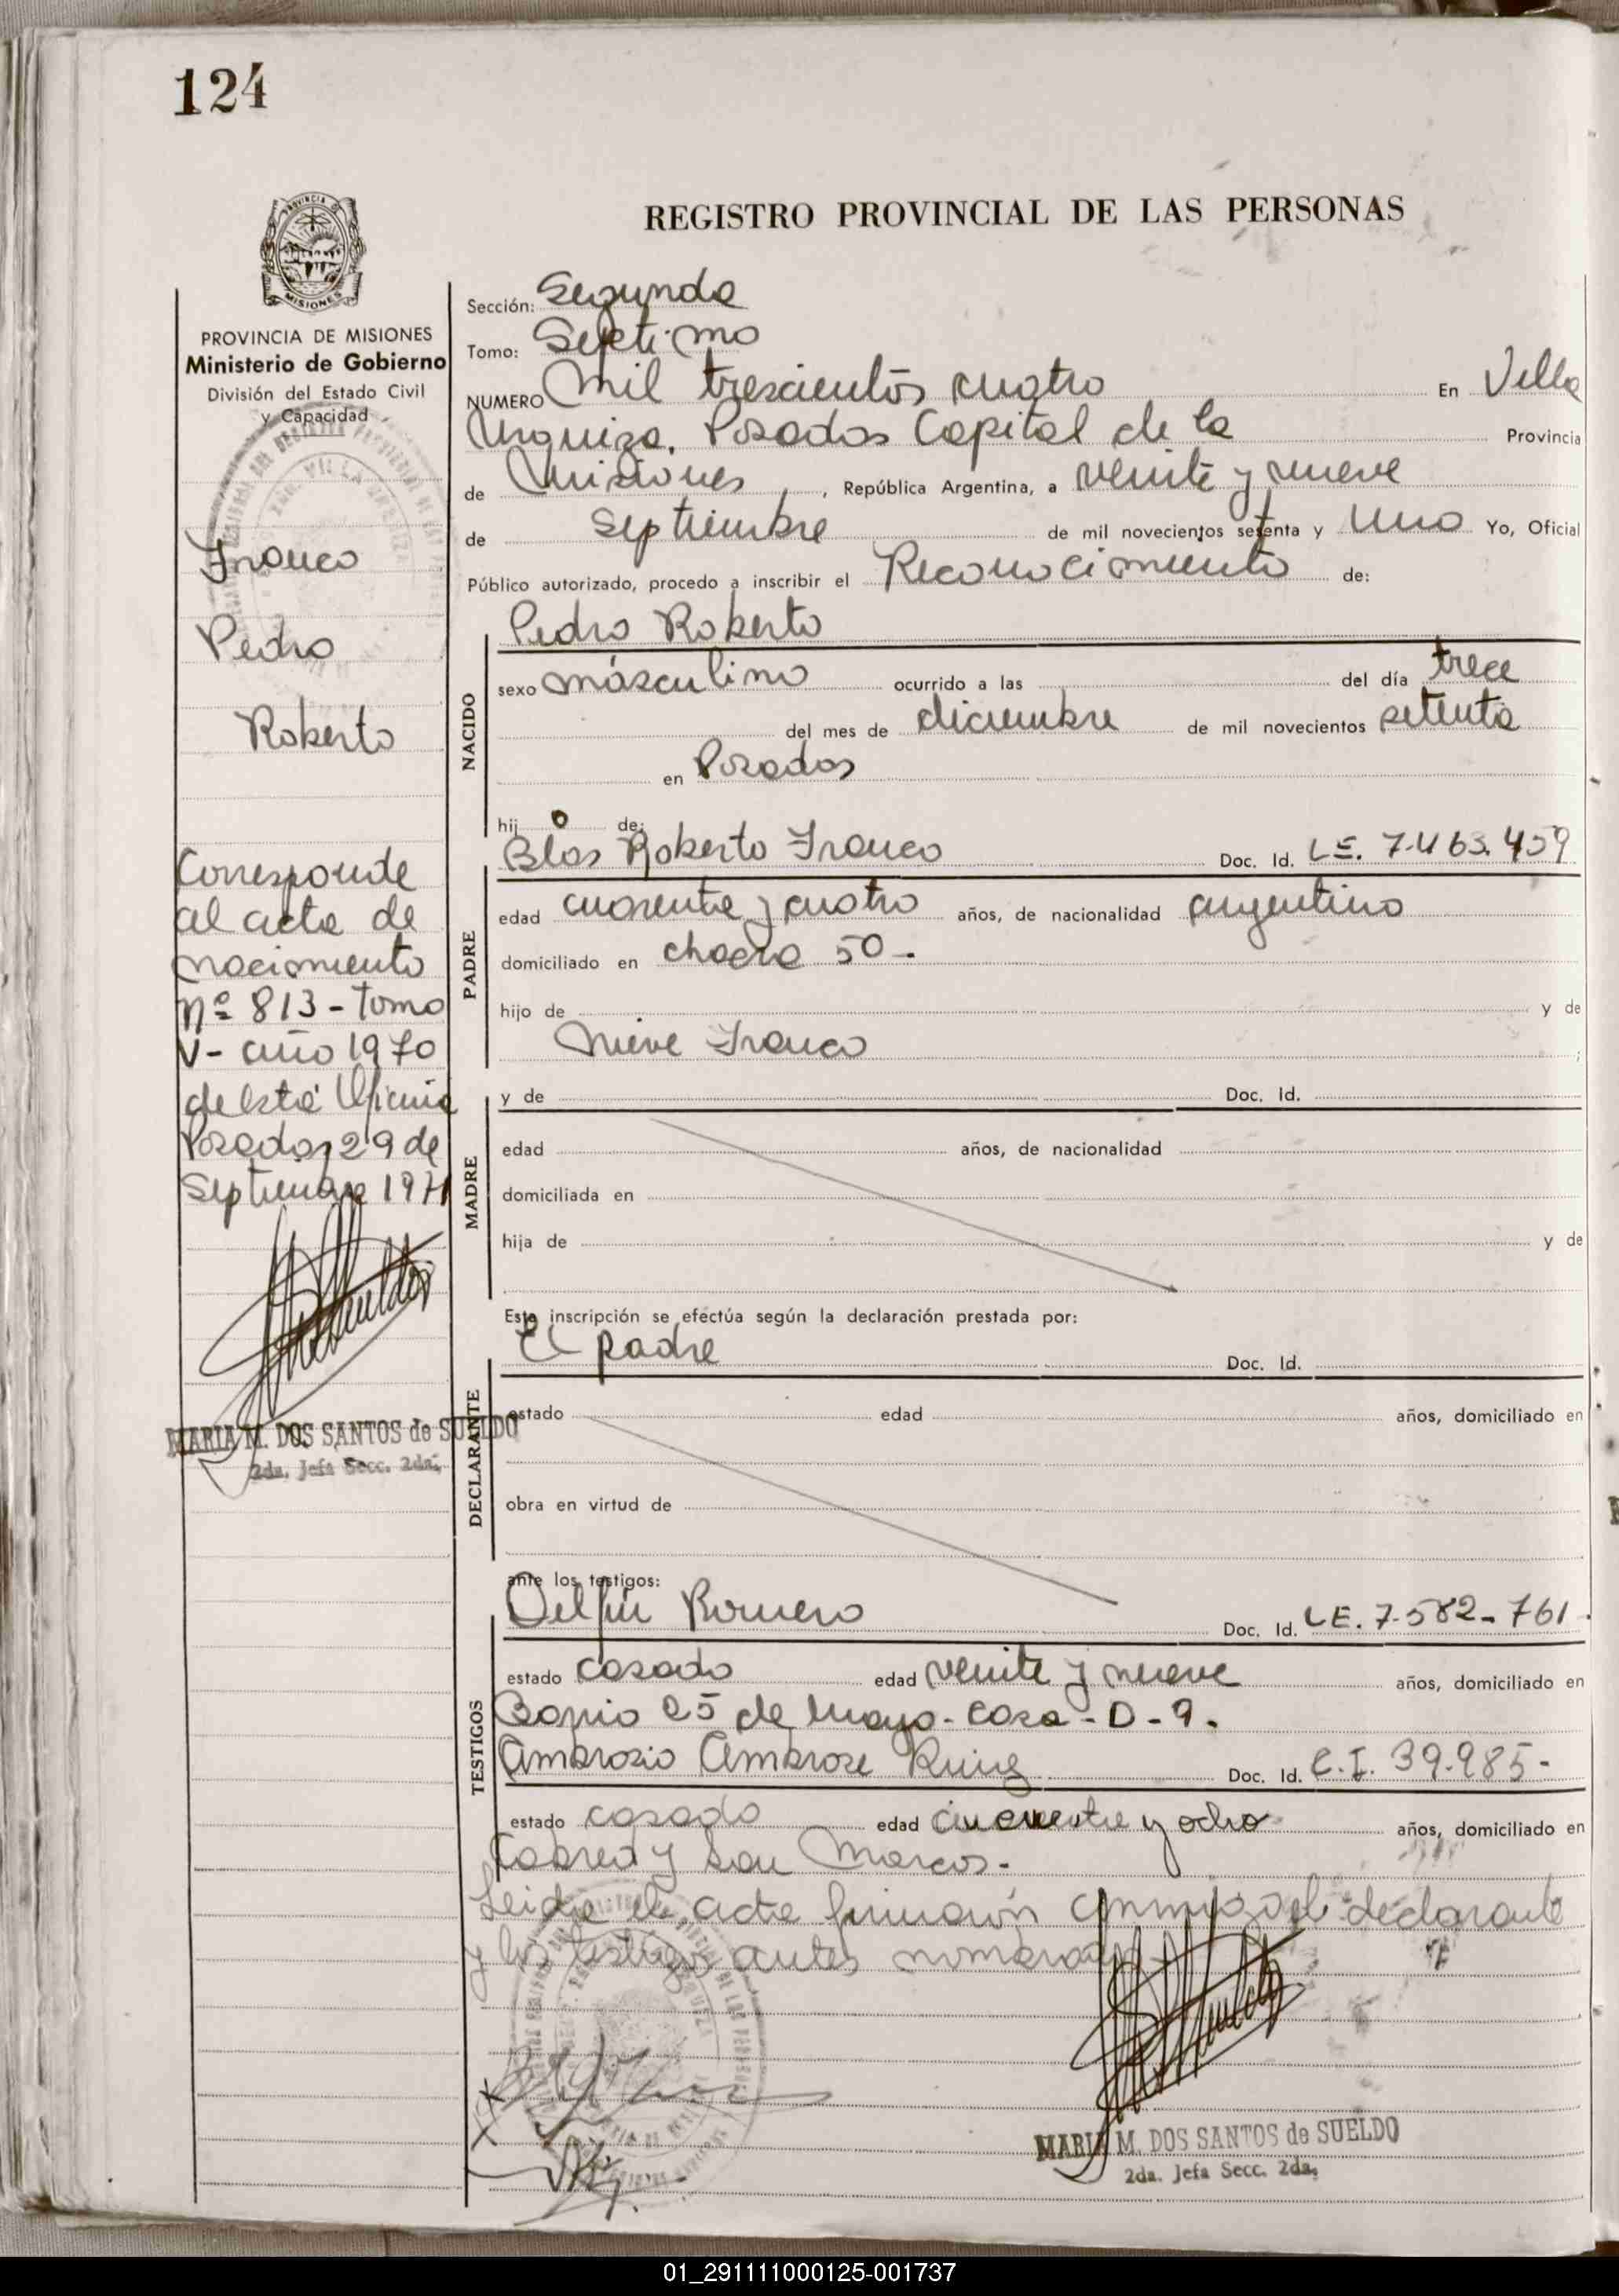 124
REGISTRO PROVINCIAL DE LAS PERSONAS
MISIONES
PROVINCIA DE MISIONES
Ministerio de Gobierno
División del Estado Civil
y Capacidad
Franco
Pedro
Roberto
Corresponde
al acta de
nacimiento
nº 813 - Tomo
V - año 1970
de esta Oficina
Posadas 29 de
Septiembre 1971
MARIA M. DOS SANTOS de SUELDO
2da. Jefa Secc. 2da.
Sección: Segunda
Tomo: Septimo
NUMERO Mil trescientos cuatro En Villa
Urquiza. Posadas Capital de la Provincia
de Misiones, República Argentina, a veinte y nueve
de septiembre de mil novecientos setenta y uno Yo, Oficial
Público autorizado, procedo a inscribir el Reconocimiento de:
NACIDO
Pedro Roberto
sexo masculino ocurrido a las del día trece
del mes de diciembre de mil novecientos setenta
en Posadas
hijo de:
PADRE
Blas Roberto Franco Doc. Id. LE. 7.463.459
edad cuarenta y cuatro años, de nacionalidad argentino
domiciliado en chacra 50 -.
hijo de y de
Nieve Franco ;
MADRE
y de Doc. Id.
edad años, de nacionalidad
domiciliada en
hija de y de
Esta inscripción se efectúa según la declaración prestada por:
DECLARANTE
El padre Doc. Id.
estado edad años, domiciliado en
obra en virtud de
ante los testigos:
TESTIGOS
Delfin Romero Doc. Id. LE. 7.582-761.
estado casado edad veinte y nueve años, domiciliado en
Barrio 25 de Mayo - casa - D - 9.
Ambrosio Ambrose Ruiz Doc. Id. C.I. 39.985-
estado casado edad cincuenta y ocho años, domiciliado en
Cabred y San Marcos.-
Leida el acta firmaron conmigo el declarante
y los testigos antes nombrados
MARIA M. DOS SANTOS de SUELDO
2da. Jefa Secc. 2da.
01_291111000125-001737